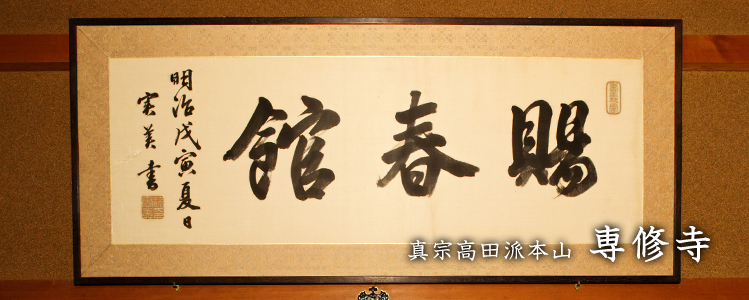 賜春館
明治戊寅夏日
実美書
真宗高田派本山 専修寺